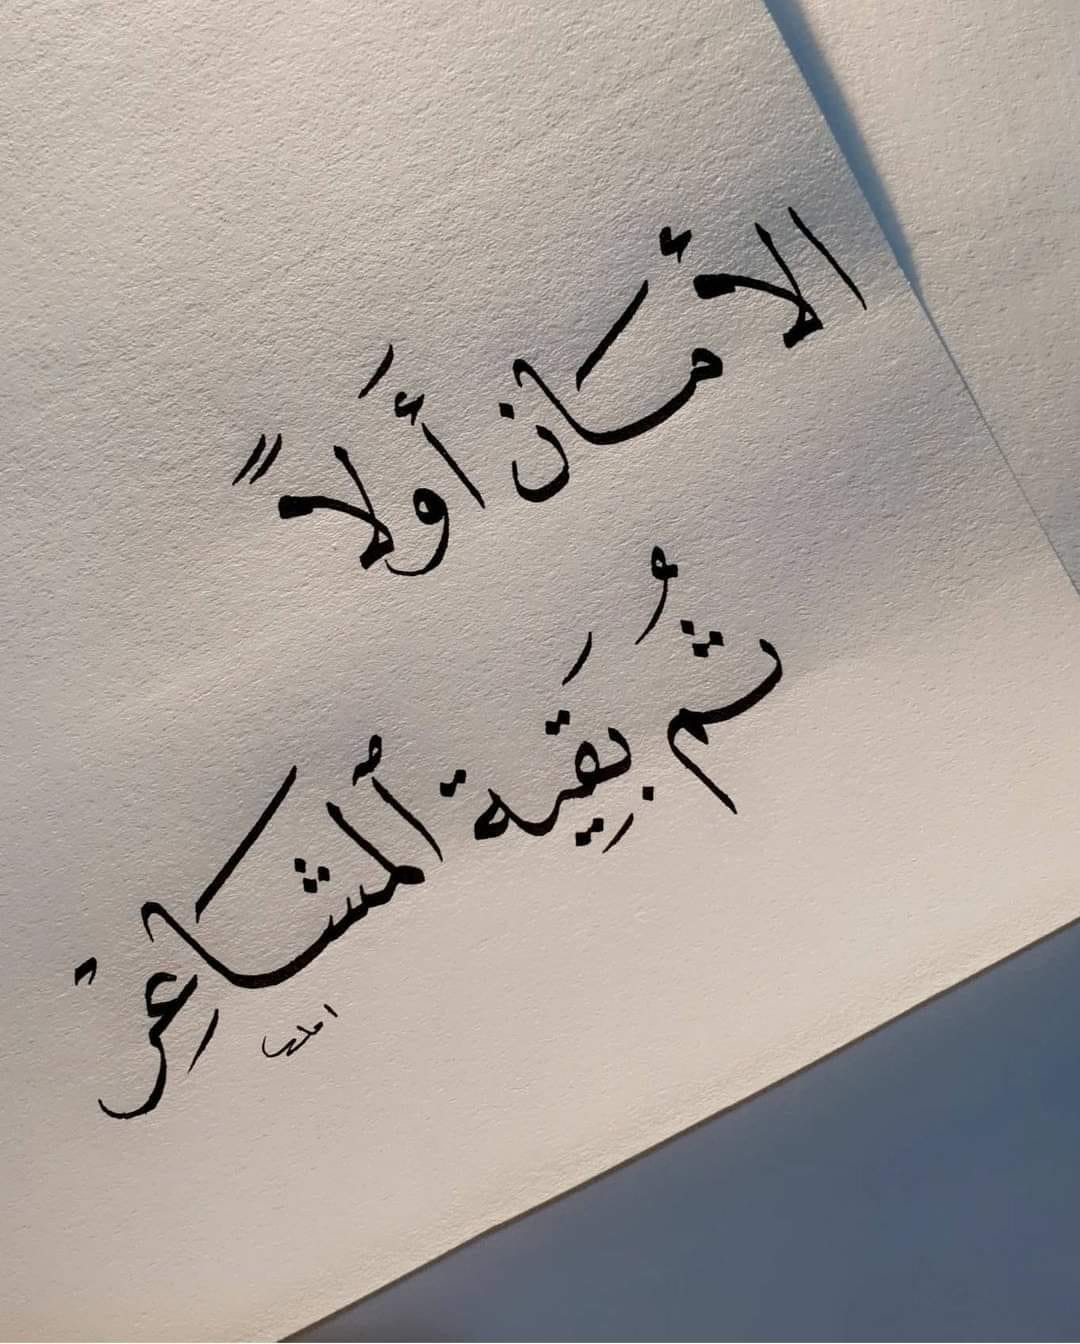 الأمان أَولاً
ثُم بَقِية ٱلمشاعِرْ